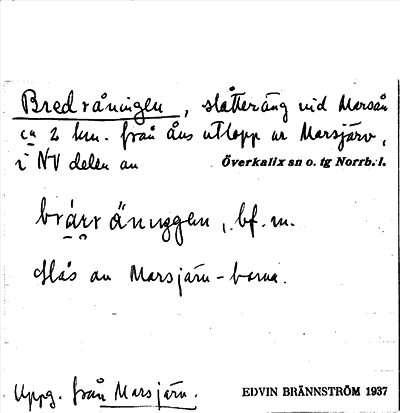 Bredråningen, slåtteräng vid Marsån
ca 2 km. från åns utlopp ur Marsjärv,
i NV delen av Överkalix sn o. tg Norrb. l.
brárr äninggen, bf. m.
Hås av Marsjärv-barna.
Uppg. från Marsjärv.
EDVIN BRÄNNSTRÖM 1937